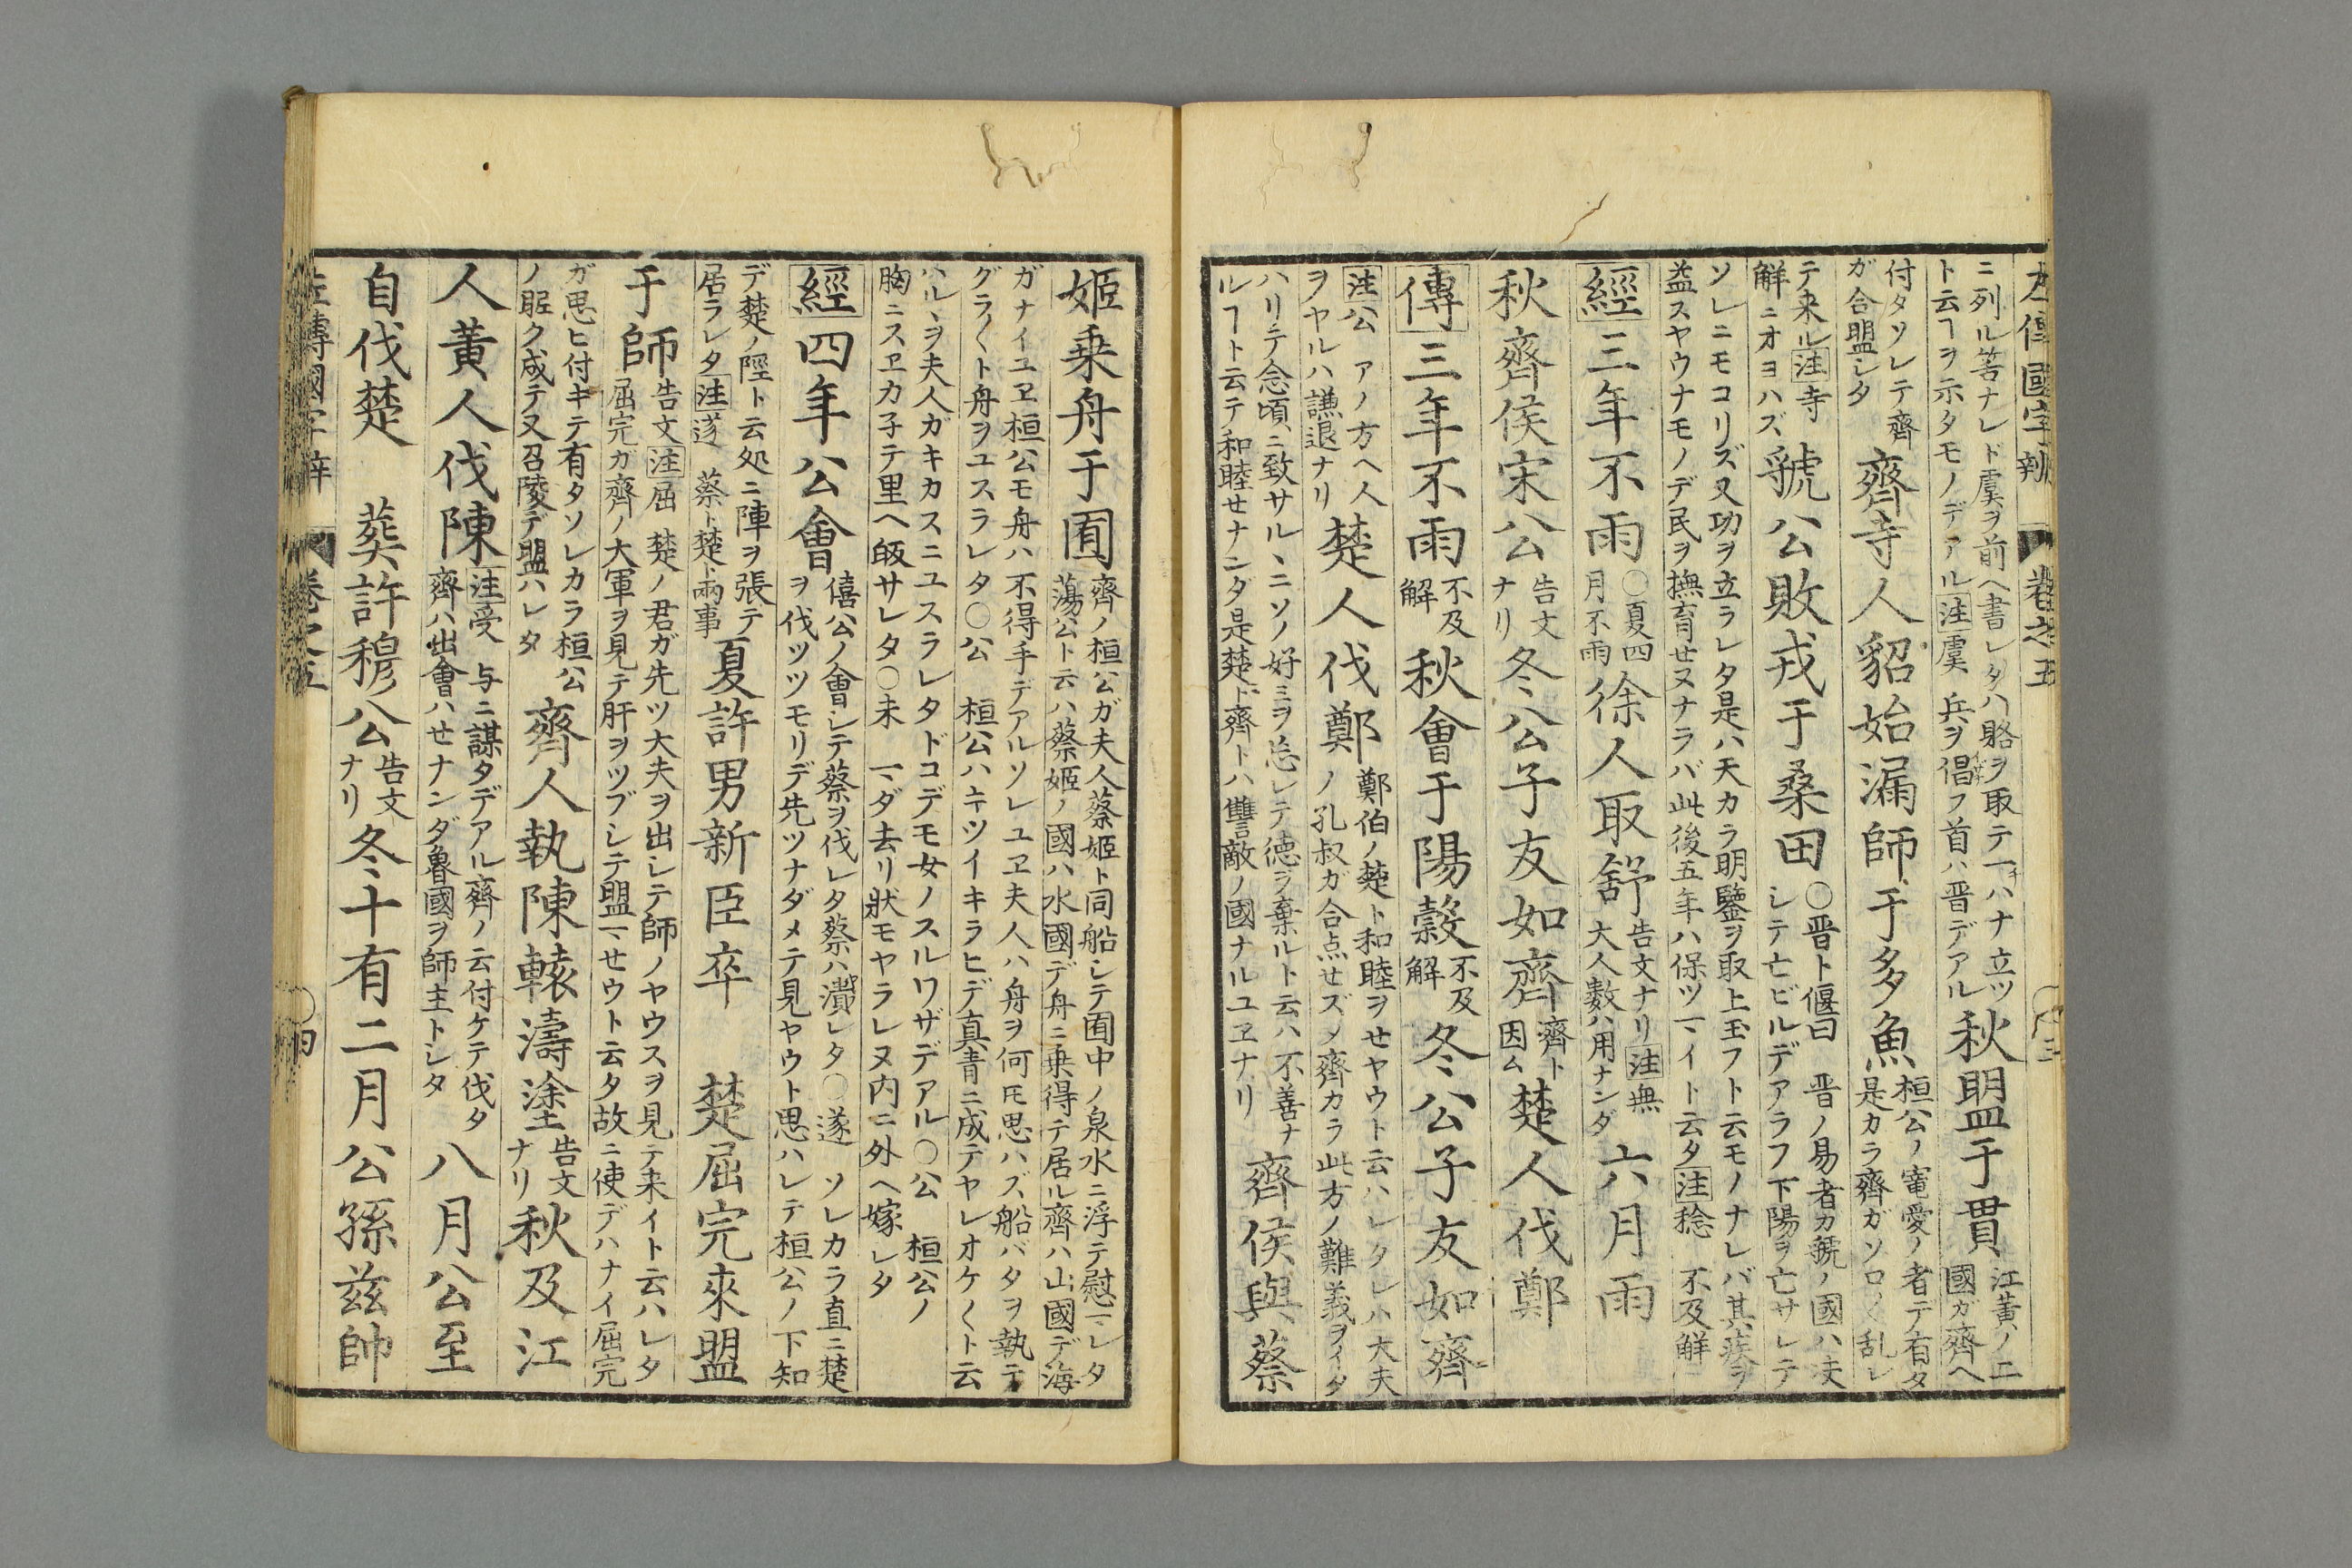 左傳國字辨 卷之五 ○三
ニ列ル筈ナレド虞ヲ前ヘ書レタハ賂ヲ取テ一ハナ立ツ
ト云ヿヲ示タモノデアル注虞 兵ヲ倡フ首ハ晋デアル
秋盟于貫
江黄ノ二
國ガ齊ヘ
付タソレテ齊
ガ合盟シタ
齊寺人貂始漏師于多魚
桓公ノ寵愛ノ者テ有タ
是カラ齊ガソロ〳〵乱レ
テ来ル注寺
解ニオヨハズ
虢公敗戎于桑田
○晋卜偃曰 晋ノ易者カ虢ノ國ハ决
シテ亡ビルデアラフ下陽ヲ亡サレテ
ソレニモコリズ又功ヲ立ラレタ是ハ天カラ明鑒ヲ取上玉フト云モノナレバ其疾ヲ
益スヤウナモノデ民ヲ撫育せヌナラバ此後五年ハ保ツマイト云タ注稔 不及解
經三年不雨
○夏四
月不雨
徐人取舒
告文ナリ注無
大人數ハ用ナンダ
六月雨
秋齊侯宋公
告文
ナリ
冬公子友如齊
齊ト
因ム
楚人伐鄭
傳三年不雨
不及
解
秋會于陽穀
不及
解
冬公子友如齊
注公 アノ方ヘ人
ヲヤルハ謙退ナリ
楚人伐鄭
鄭伯ノ楚ト和睦ヲせヤウト云ハレタレハ大夫
ノ孔叔ガ合点せズメ齊カラ此方ノ難義ヲイタ
ハリテ念頃ニ致サルヽニソノ好ミヲ忘レテ徳ヲ棄ルト云ハ不善ナ
ルヿト云テ和睦せナンダ是楚ト齊トハ讐敵ノ國ナルユヱナリ
齊侯與蔡
姬乗舟于囿
齊ノ桓公ガ夫人蔡姬ト同船シテ囿中ノ泉水ニ浮テ慰マレタ
蕩公ト云ハ蔡姬ノ國ハ水國デ舟ニ乗得テ居ル齊ハ山國デ海
ガナイユヱ桓公モ舟ハ不得手デアルソレユヱ夫人ハ舟ヲ何トモ思ハズ船バタヲ執テ
グラ〳〵ト舟ヲユスラレタ○公 桓公ハキツイキラヒデ真青ニ成テヤレオケ〳〵ト云
ハルヽヲ夫人ガキカスニユスラレタドコデモ女ノスルワザデアル○公 桓公ノ
胸ニスヱカ子テ里ヘ皈サレタ○未 マダ去リ狀モヤラレヌ内ニ外ヘ嫁レタ
經四年公會
僖公ノ會シテ蔡ヲ伐レタ蔡ハ潰レタ○遂 ソレカラ直ニ楚
ヲ伐ツツモリデ先ツナダメテ見ヤウト思ハレテ桓公ノ下知
デ楚ノ陘ト云処ニ陣ヲ張テ
居ラレタ注遂 蔡ト楚ト両事
夏許男新臣卒 楚屈完來盟
于師
告文注屈 楚ノ君ガ先ツ大夫ヲ出シテ師ノヤウスヲ見テ来イト云ハレタ
屈完ガ齊ノ大軍ヲ見テ肝ヲツブシテ盟マせウト云タ故ニ使デハナイ屈完
ガ思ヒ付キテ有タソレカラ桓公
ノ眤ク成テ又召陵デ盟ハレタ
齊人執陳轅濤塗
告文
ナリ
秋及江
人黄人伐陳
注受 与ニ謀タデアル齊ノ云付ケテ伐タ
齊ハ出會ハせナンダ魯國ヲ師主トシタ
八月公至
自伐楚 葬許穆公
告文
ナリ
冬十有二月公孫兹帥
左傳國字辨 卷之五 ○四